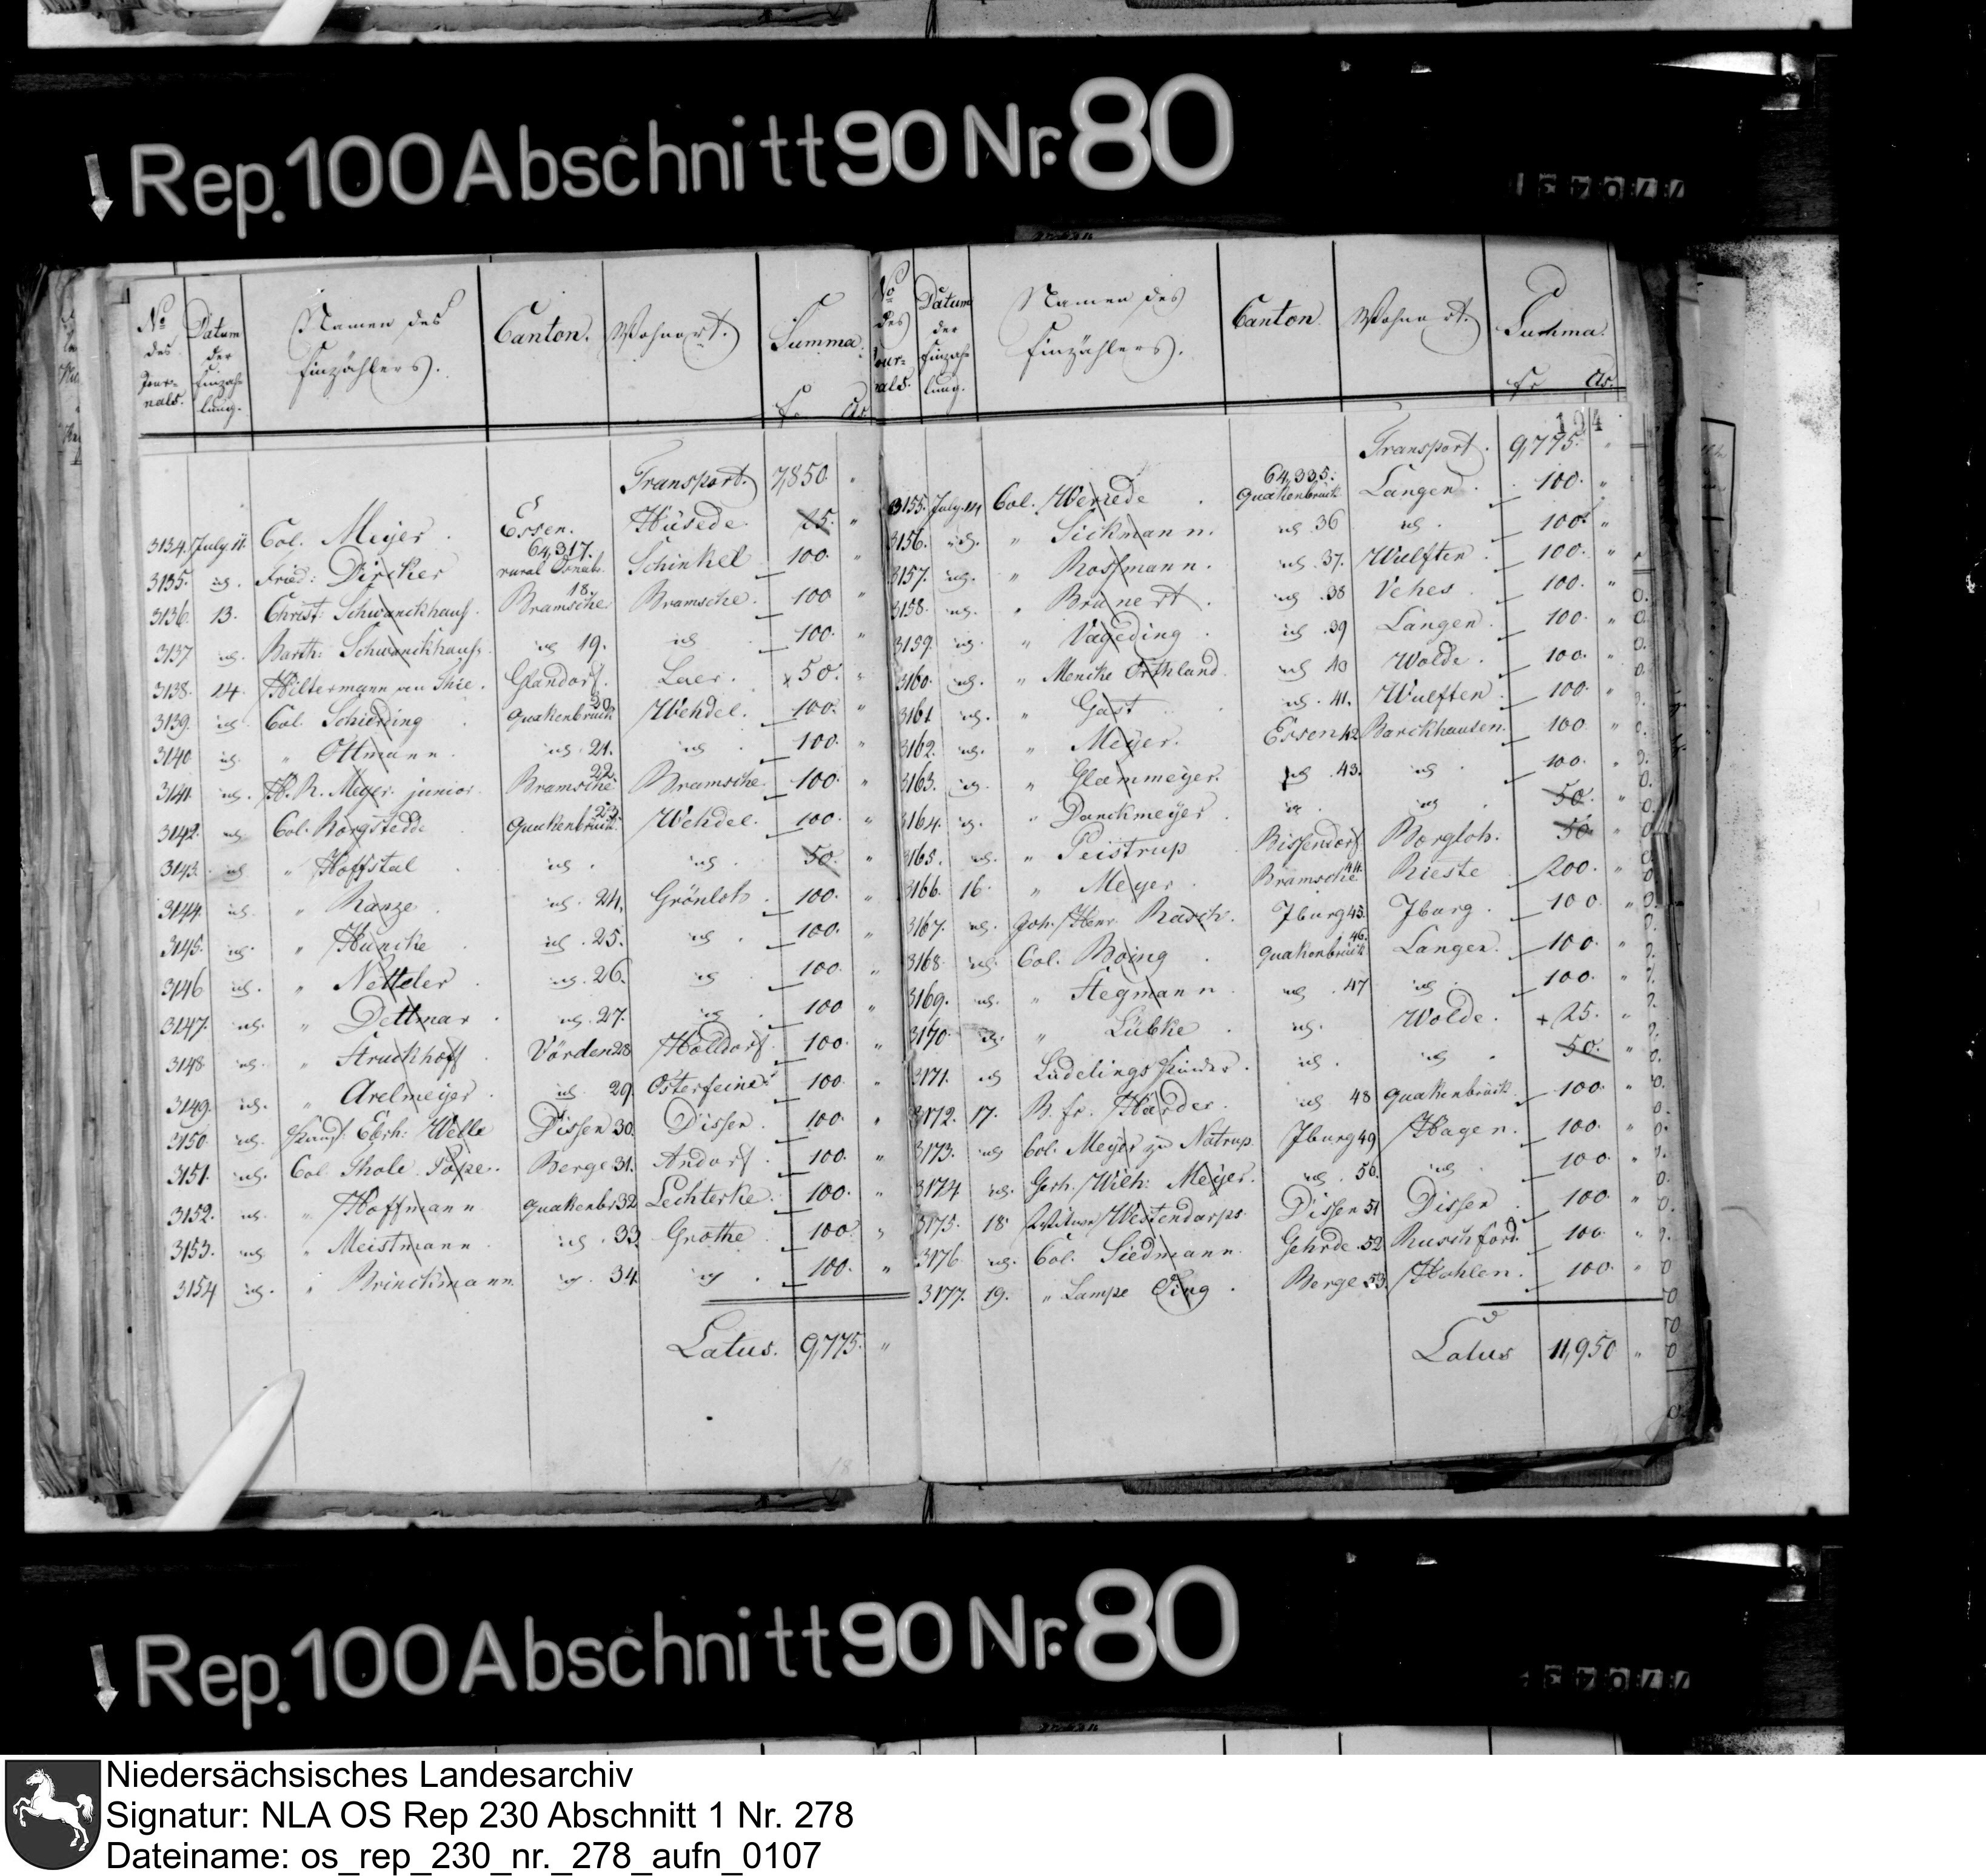 Rep. 100 Abschnitt 90 Nr. 80
No des Jour= nals. Datum der Einzah= lung. Namen des Einzählers. Canton. Wohnort. Summa. fr. Cs.
Transport. 7,850. "
3134. July 11. Col. Meyer. Essen. Hüsede. 25. "
3135. id. Fried: Dircker 64,317. rural Osnab. Schinkel 100. "
3136. 13. Christ: Schwanckhaus. Bramsche 18. Bramsche. 100 "
3137 id. Barth: Schwanckhaus. id 19. id 100. "
3138. 14. Hiltermann Glandorf. Laer. x 50. "
3139. id. Col. Schierding Quakenbrück 20. Wehdel. 100. "
3140 id. " Ottmann. id. 21. id 100. "
3141. id. H. R. Meyer junior. Bramsche 22. Bramsche. 100. "
3142. id. Col. Borgstedde Quakenbrück 23. Wehdel. 100. "
3143. id " Hoffstal id. id. 50. "
3144. id. " Ranze. id. 24. Grönloh. 100. "
3145. id. " Huncke id. 25. id. 100. "
3146 id. " Netteler id. 26. id 100. "
3147. id. " Dettmar. id. 27. id. 100 "
3148. id. " Struckhoff Vörden 28 Holldorf. 100. "
3149. id. " Arelmeyer. id. 29. Osterfeine. 100. "
3150. id. Ebrh: Welle Dissen 30. Dissen. 100. "
3151. id. Col. Thole Pope. Berge 31. Andorf. 100. "
3152. id. " Hoffmann Quakenbr 32 Lechterke. 100. "
3153. id. " Meistmann id. 33. Grothe 100. "
3154 id. " Brinckmann. id. 34. id. 100. "
Latus. 9,775. "
No des Jour= nals. Datum der Einzah= lung. Namen des Einzählers. Canton. Wohnort. Summa. fr. Cs.
194
Transport. 9,775. "
3155. July 14. Col. Wernede 64,335. Quakenbrück Langen. 100. "
3156. id. " Sickmann. id 36 id. 100. "
3157. id. " Rossmann. id. 37. Wulften. 100. "
3158. id. " Brunert. id. 38 Vehs. 100. "
3159. id. " Vageding. id. 39 Langen. 100. "
3160. id. " Mencke Orthland id 40 Wolde. 100. "
3161 id. " Gast id. 41. Wulften. 100. "
3162. id. " Meyer. Essen 42. Barckhausen. 100. "
3163. id. " Glanmeyer. id. 43. id. 100. "
3164. id. " Danckmeyer id. id 50. "
3165. id. " Peistrup Bissendorf Borgloh. 50. "
3166. 16. " Meyer. Bramsche 44. Rieste 200. "
3167. id. Joh. Henr. Rasch. Iburg 45. Iburg. 100. "
3168 id. Col. Boing Quakenbrück 46. Langen. 100. "
3169. id. " Stegmann id. 47 id. 100. "
3170. id. " Lübke id. Wolde. + 25. "
3171. id Lüdelings Kinder. id. id. 50. "
3172. 17. B. fr. Harder. id 48 Quakenbrück. 100. "
3173. id Col. Meyer zu Natrup. Iburg 49 Hagen. 100. "
3174 id. Gerh. Wilh: Meyer. id. 50. id. 100 "
3175. 18. Witwe Westendarps Dissen 51 Dissen. 100. "
3176 id. Col. Siedmann Gehrde. 52 Ruschford. 100. "
3177. 19. " Lampe Ding Berge 53. Hahlen. 100. "
Latus 11,950 "
Rep. 100 Abschnitt 90 Nr. 80
Niedersächsisches Landesarchiv
Signatur: NLA OS Rep 230 Abschnitt 1 Nr. 278
Dateiname: os_rep_230_nr._278_aufn_0107